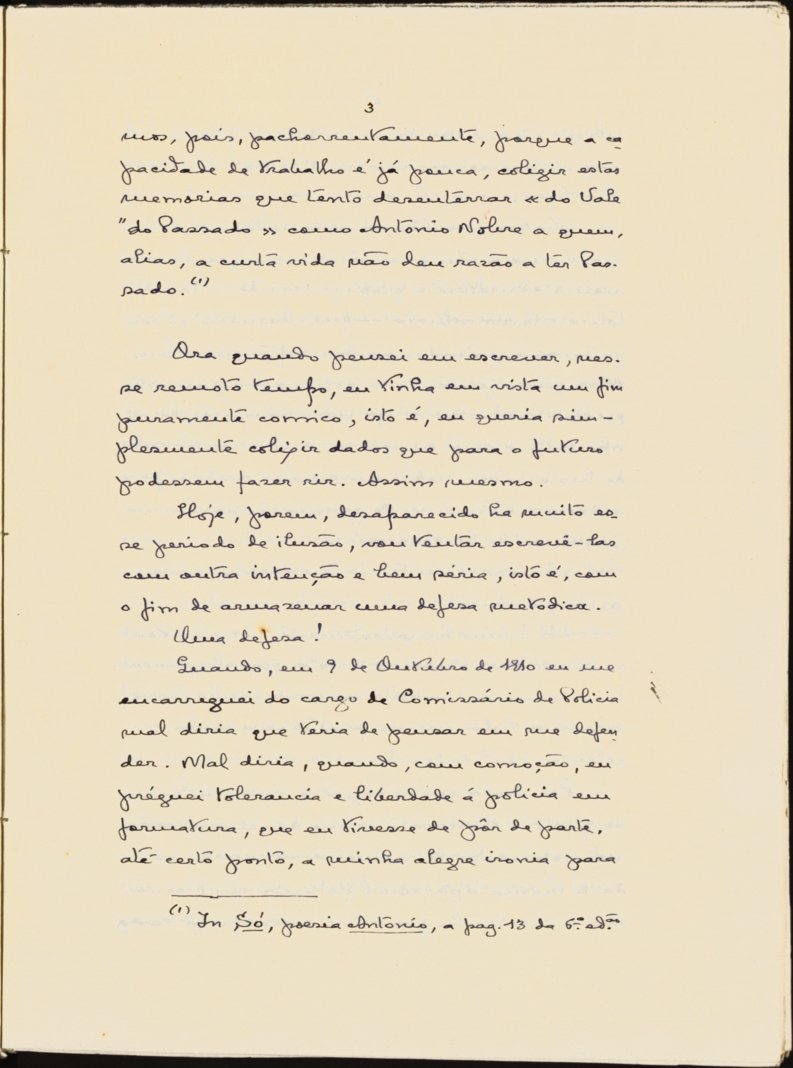 3
mos, pois, pachorrentamente, porque a ca
pacidade de trabalho é já pouca, coligir estas
memorias que tento desenterrar « do Vale
"do Passado » como Antonio Nobre a quem,
alias, a curta vida não deu razão a ter Pas-
sado. (1)
Ora quando pensei em escrever, nes-
se remoto tempo, eu tinha em vista um fim
puramente comico, isto é, eu queria sim-
plesmente coligir dados que para o futuro
podessem fazer rir. Assim mesmo.
Hoje, porem, desaparecido ha muito es-
se periodo de ilusão, vou tentar escrevê-las
com outra intenção e bem séria, isto é, com
o fim de armazenar uma defesa metódica.
Uma defesa!
Quando, em 9 de Outubro de 1910 eu me
encarreguei do cargo de Comissário de Policia
mal diria que teria de pensar em me defen
der. Mal diria, quando, com comoção, eu
préguei tolerancia e liberdade á policia em
formatura, que eu tivesse de pôr de parte,
até certo ponto, a minha alegre ironia para
(1) In Só, poesia Antonio, a pag. 13 da 6.ª ed.ão